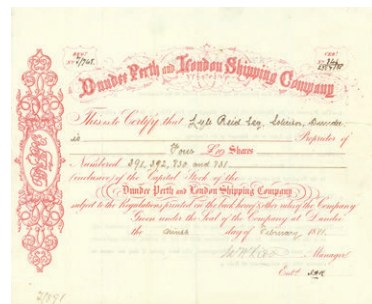 Dundee Perth and London Shipping Company
This is to Certify that Lyle Reid Esq. Solicitor, Dundee
is Proprietor of
Four £10 Shares
Numbered 391, 392, 730 and 731
(inclusive) of the Capital Stock of the
Dundee Perth and London Shipping Company
subject to the Regulations printed on the back hereof & other rules of the Company
Given under the Seal of the Company at Dundee
the day of February 18
Manager
Entd.